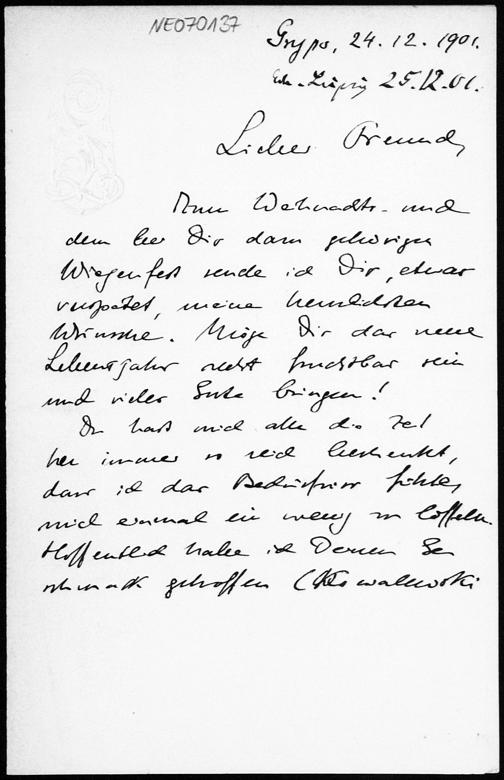 NEO70137
Gryps, 24.12.1901.
Leipzig 25.12.01.
Lieber Freund,
Zum Weihnachts- und
dem bei Dir dazu gehörigen
Wiegenfest sende ich Dir, etwas
verspätet, meine herzlichsten
Wünsche. Möge Dir das neue
Lebensjahr recht fruchtbar sein
und vieles Gute bringen!
Du hast mich alle die Zeit
her immer so reich beschenkt,
dass ich das Bedürfniss fühlte,
mich einmal ein wenig zu löffeln.
Hoffentlich habe ich Deinen Ge
schmack getroffen (Kowalewski